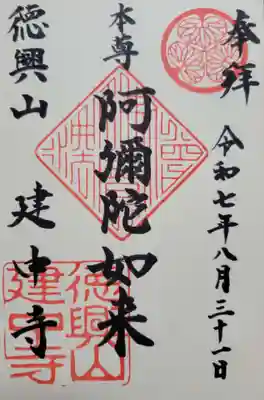 奉拝
令和七年八月三十一日
本尊
阿彌陀如来
徳興山
建中寺
徳興山
建中寺